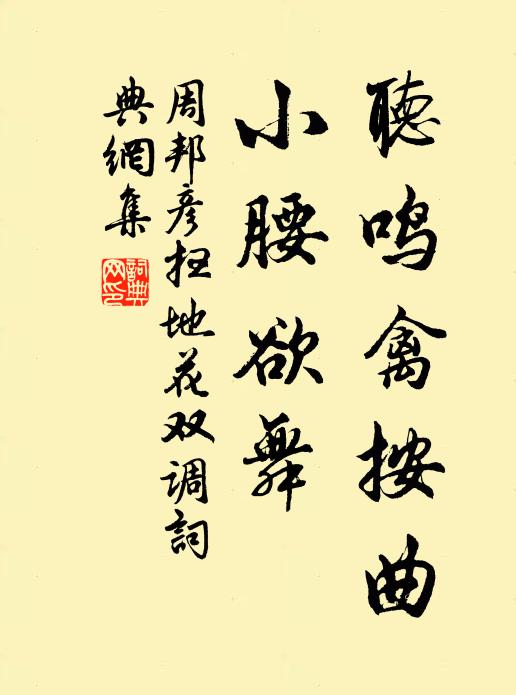 聽鸣禽按曲
小腰欲舞
周邦彦扫地花双调詞
典網集
詞典网印